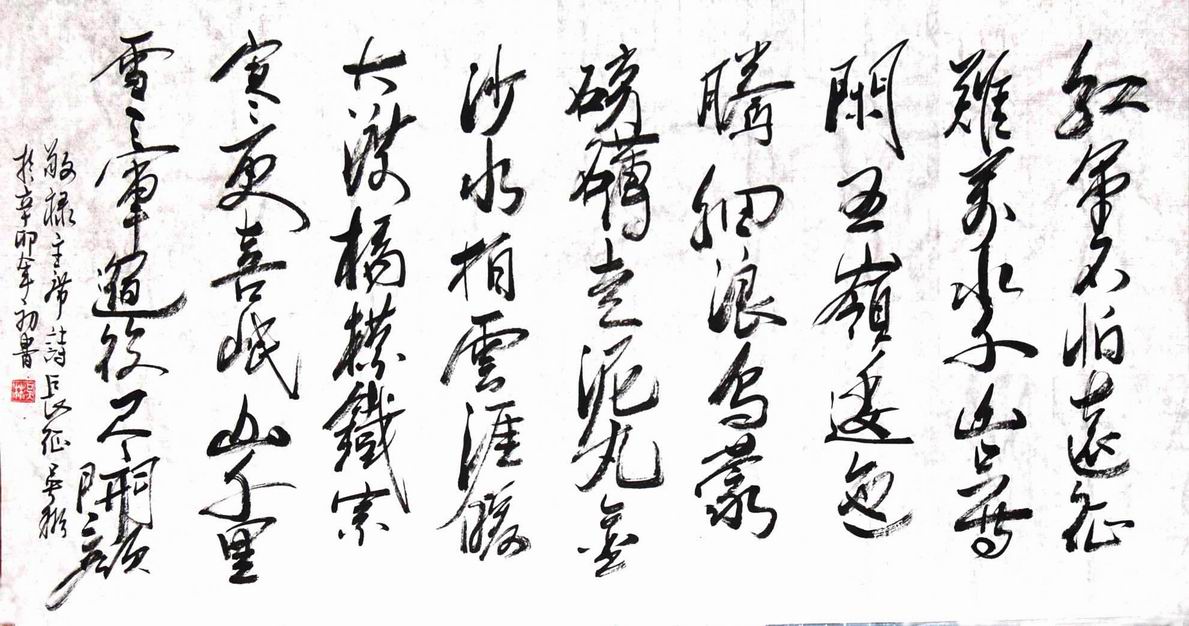 紅軍不怕遠征
難萬水千山只等
閑五嶺逶迤
騰細浪烏蒙
磅礴走泥丸金
沙水拍雲涯暖
大渡橋橫鐵索
寒更喜岷山千里
雪三軍過後尽開顏
敬錄主席詩長征吳
於辛卯年初書